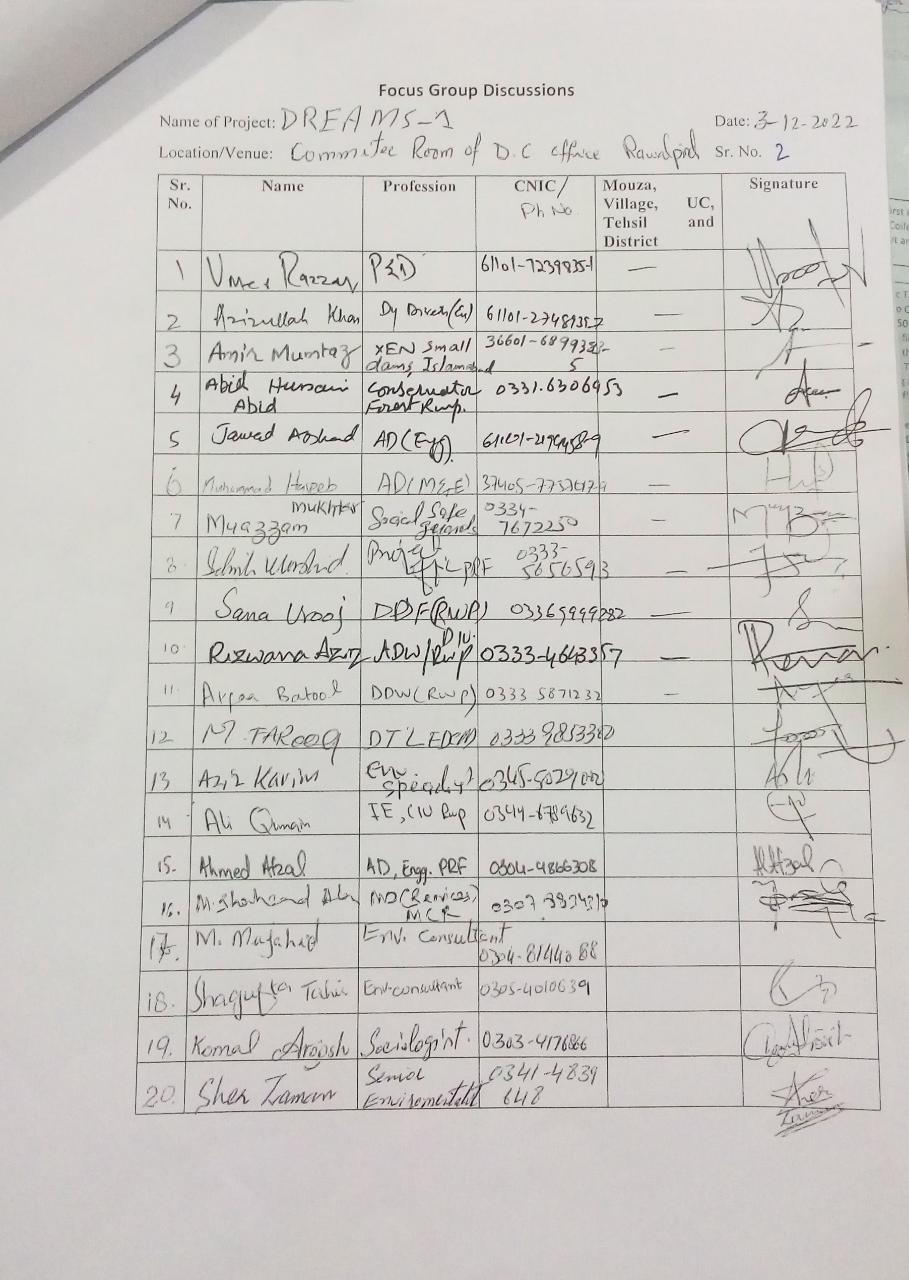 Focus Group Discussions
Name of Project: DREAMS-1 Date: 3-12-2022
Location/Venue: Committee Room of D.C office Rawalpindi Sr. No. 2
Sr. No. Name Profession CNIC/ Ph No. Mouza, Village, UC, Tehsil and District Signature
1 Umer Razzaq P&D 61101-7239835-1 —
2 Azizullah Khan Dy Director(En) —
3 Amir Mumtaz XEN Small dams, Islamabad —
4 Abid Hussain Abid Conservator Forest Rwp. 0331.6306953 —
5 Jawad Arshad AD(Eng). —
6 Muhammad Haseeb AD(M&E) —
7 Muazzam Mukhtar Social Safe guards 0334-7672250 —
8. Project PRF 0333-5656593 —
9 Sana Urooj DDF(RWP) 03369999282 —
10 Rizwana Aziz ADW/Rwp Div. 0333-4643357 —
11. Batool DDW(RWP) 0333 5871232 —
12 M. FAROOQ
13 Aziz Karim Env specialist
14 Ali Qumain IE, CIU Rwp 0344-6789632
15. Ahmed Afzal AD, Engg. PRF 0304-4866308 AAfzal
16. M. MO(Services) MCR
17. M. Mujahid Env. Consultant 0304-8144088
18. Shagufta Tahir Env-consultant 0305-4010639
19. Komal Aroosh Sociologist. 0303-4176866
20. Sher Zaman Senior Enviromentalist 0341-4839648 Sher Zaman